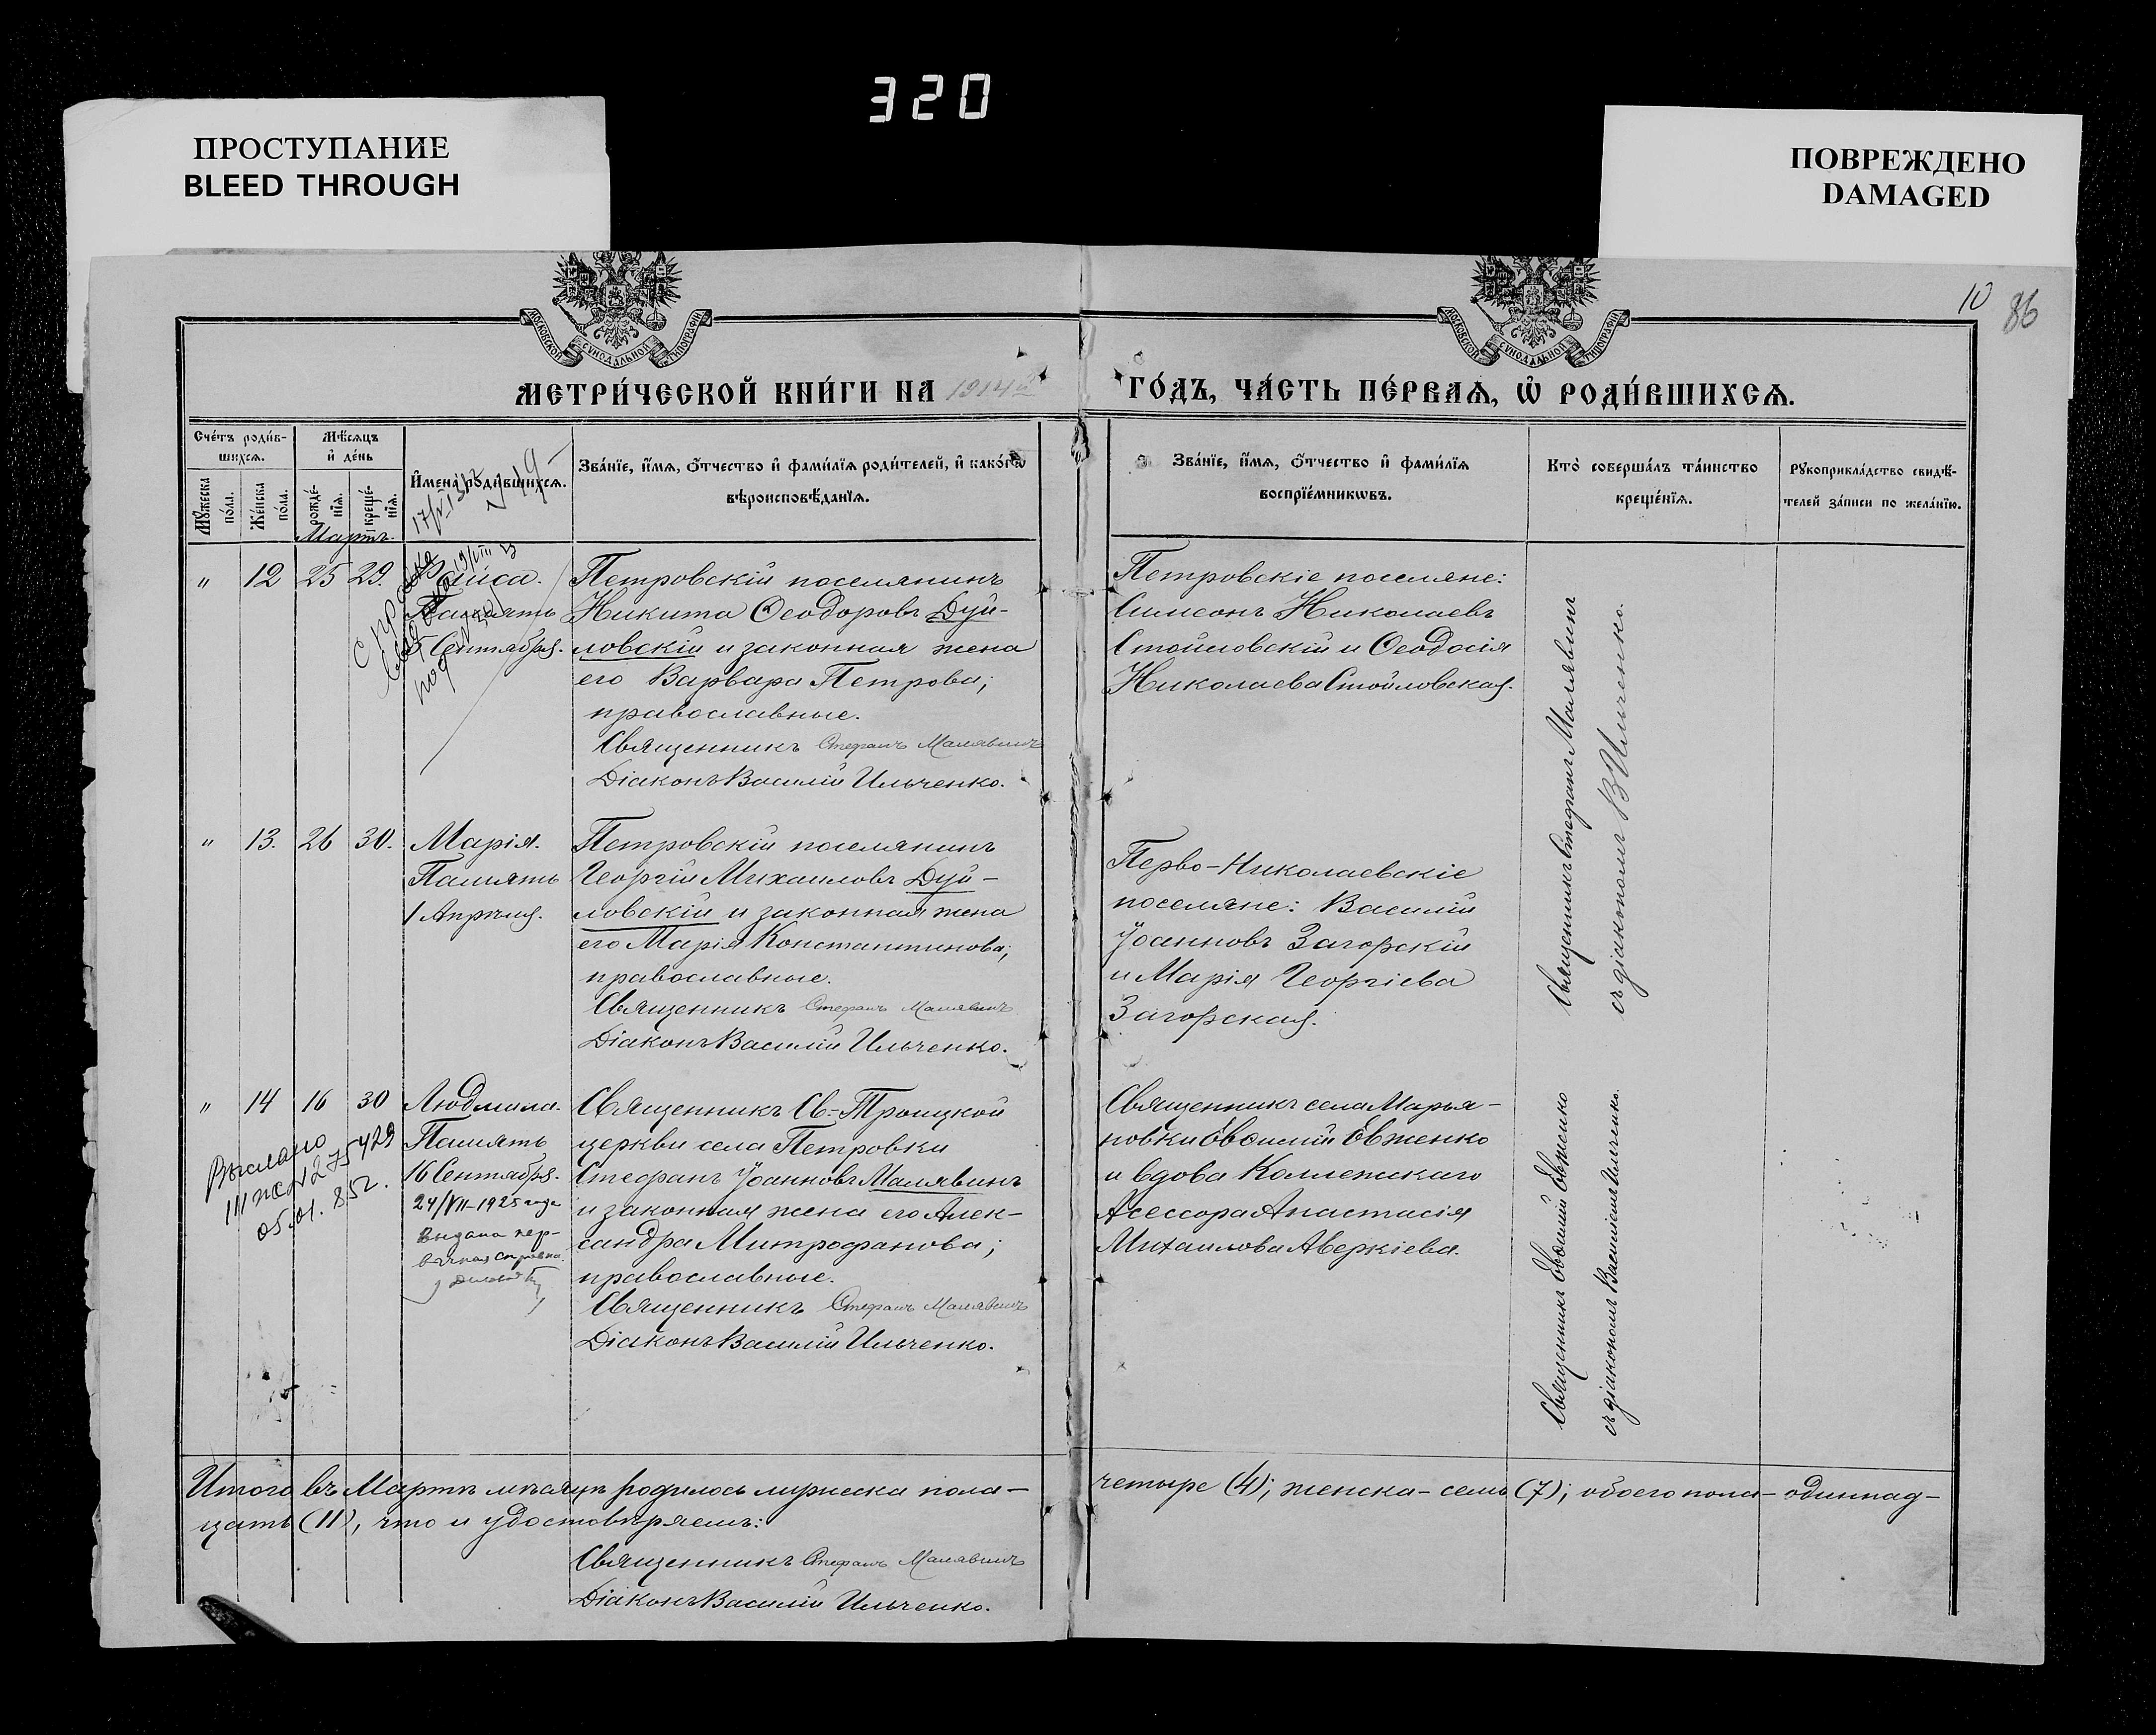 320
ПРОСТУПАНИЕ
BLEED THROUGH
ПОВРЕЖДЕНО
DAMAGED
МОСКОВСКОЙ СѴНОДАЛЬНОЙ ТИПОГРАФІИ
МОСКОВСКОЙ СѴНОДАЛЬНОЙ ТИПОГРАФІИ
10 86
МЕТРИ́ЧЕСКОЙ КНИ́ГИ НА 1914 й
ГО́ДЪ, ЧА́СТЬ ПЕ́РВАѦ, Ѡ҆ РОДИ́ВШИХСѦ.
Сче́тъ роди́в-
шихсѧ.
Мѣ́сѧцъ
и҆ де́нь
Мꙋ́жеска
по́ла.
Же́нска
по́ла.
рожде́-
нїѧ.
креще́-
нїѧ.
И҆мена̀ роди́вшихсѧ.
Зва́нїе, и҆́мѧ, ѻ҆́тчество и҆ фами́лїѧ роди́телей, и҆ како́гѡ
вѣроисповѣ́данїѧ.
Зва́нїе, и҆́мѧ, ѻ҆́тчество и҆ фами́лїѧ
воспрїе́мникѡвъ.
Кто̀ соверша́лъ та́инство
креще́нїѧ.
Рꙋкоприкла́дство свидѣ́-
телей за́писи по жела́нїю.
Мартъ.
" 12 25 29. Раиса.
Память
5 Сентября.
Петровскій поселянинъ
Никита Ѳеодоровъ Дуй-
ловскій и законная жена
его Варвара Петрова;
православные.
Священникъ Стефанъ Малявинъ
Діаконъ Василій Ильченко.
Петровскіе поселяне:
Симеонъ Николаевъ
Стойловскій и Ѳеодосія
Николаева Стойловская.
Священникъ Стефанъ Малявинъ
съ діакономъ В Ильченко.
" 13. 26 30. Марія.
Память
1 Апрѣля.
Петровскій поселянинъ
Георгій Михаиловъ Дуй-
ловскій и законная жена
его Марія Константинова;
православные.
Священникъ Стефанъ Малявинъ
Діаконъ Василій Ильченко.
Перво-Николаевскіе
поселяне: Василій
Іоанновъ Загорскій
и Марія Георгіева
Загорская.
" 14 16 30 Людмила.
Память
16 Сентября.
24/VII-1925 года
выдана
Выслано
05.01.852.
Священникъ Св.-Троицкой
церкви села Петровки
Стефанъ Іоанновъ Малявинъ
и законная жена его Алек-
сандра Митрофанова;
православные.
Священникъ Стефанъ Малявинъ
Діаконъ Василій Ильченко.
Священникъ села Марья-
новки Евѳимій Евженко
и вдова Коллежскаго
Асессора Анастасія
Михаилова Аверкіева.
Священникъ Евѳимій Евженко
съ діакономъ Василіемъ Ильченко.
Итого въ Мартѣ мѣсяцѣ родилось мужеска пола-
четыре (4); женска-семь (7); обоего пола-одиннад-
цать (11), что и удостовѣряемъ:
Священникъ Стефанъ Малявинъ
Діаконъ Василій Ильченко.